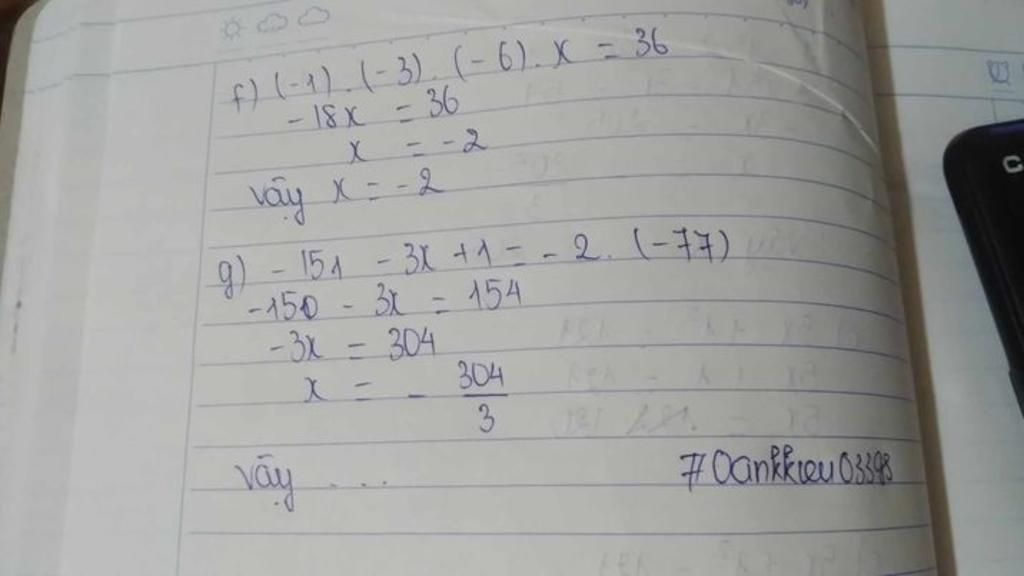 f) (-1).(-3).(-6).x = 36
-18x = 36
x = -2
Vậy x = -2
g) -151 - 3x + 1 = -2.(-77)
-150 - 3x = 154
-3x = 304
x = - 304/3
Vậy ...
#Oankkieu03398
C